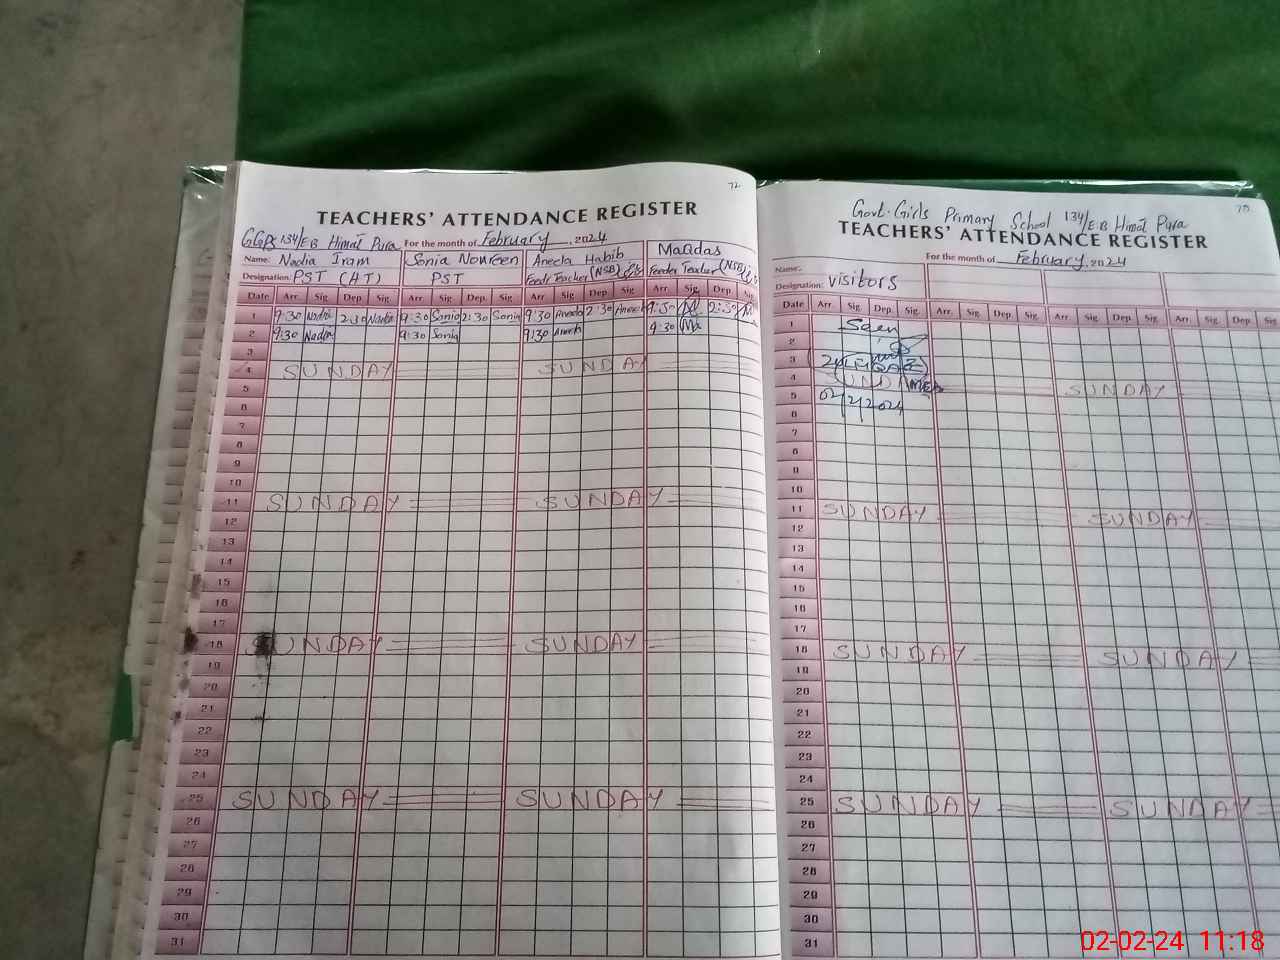 72
TEACHERS' ATTENDANCE REGISTER
GGPS 134/EB Himat Pura For the month of February 2024
Name: Nadia Iram Sonia Noureen Aneela Habib Maqdas
Designation: PST (HT) PST Feeder Teacher (NSB) Feeder Teacher (NSB)
Date Arr. Sig. Dep. Sig. Arr. Sig. Dep. Sig. Arr. Sig. Dep. Sig. Arr. Sig. Dep. Sig.
1 9:30 Nadia 2:30 Nadia 9:30 Sonia 2:30 Sonia 9:30 Aneela 2:30 Aneela 9:30 2:30
2 9:30 Nadia 9:30 Sonia 9:30 Aneela 9:30
3
4 SUNDAY SUNDAY
5
6
7
8
9
10
11 SUNDAY SUNDAY
12
13
14
15
16
17
18 SUNDAY SUNDAY
19
20
21
22
23
24
25 SUNDAY SUNDAY
26
27
28
29
30
31
Govt. Girls Primary School 134/E.B Himat Pura
TEACHERS' ATTENDANCE REGISTER
For the month of February 2024
Name:
Designation: visitors
Date Arr. Sig. Dep. Sig. Arr. Sig. Dep. Sig. Arr. Sig. Dep. Sig. Arr. Sig. Dep.
1 Seen
2
3
4 SUNDAY SUNDAY
5 02/2/2024
6
7
8
9
10
11 SUNDAY SUNDAY
12
13
14
15
16
17
18 SUNDAY SUNDAY
19
20
21
22
23
24
25 SUNDAY SUNDAY
26
27
28
29
30
31
02-02-24 11:18